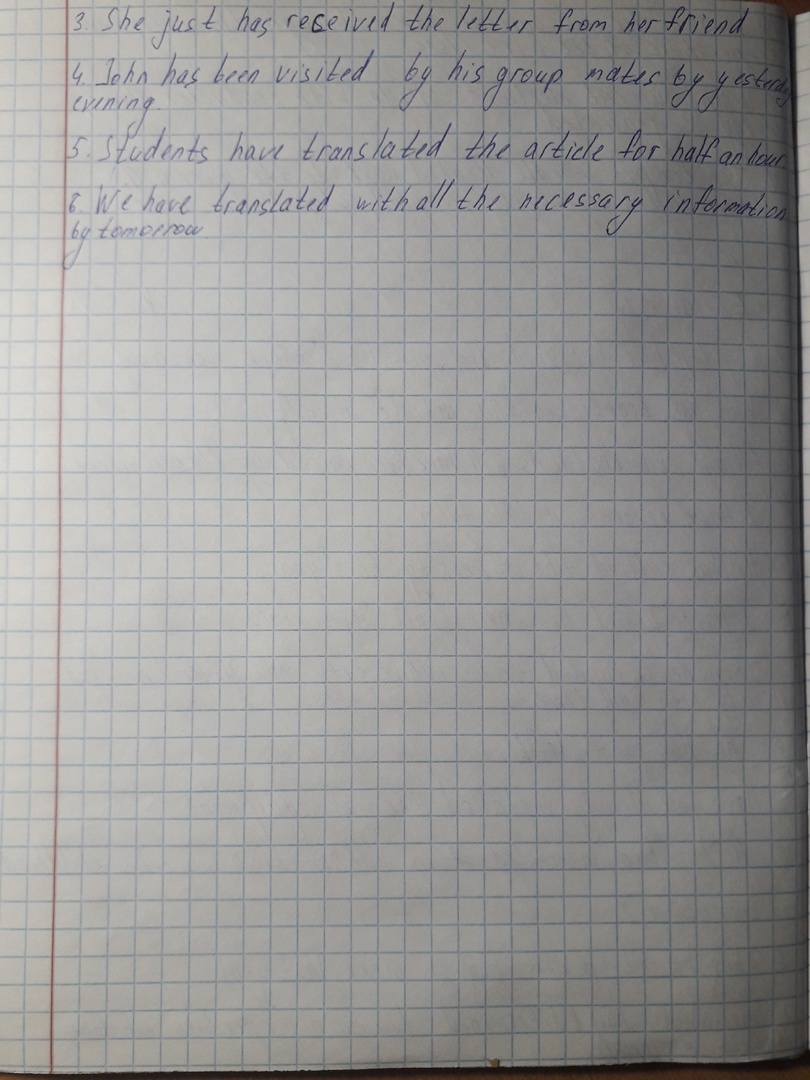 3. She just has received the letter from her friend
4. John has been visited by his group mates by yesterday
evening.
5. Students have translated the article for half an hour
6. We have translated with all the necessary information
by tomorrow